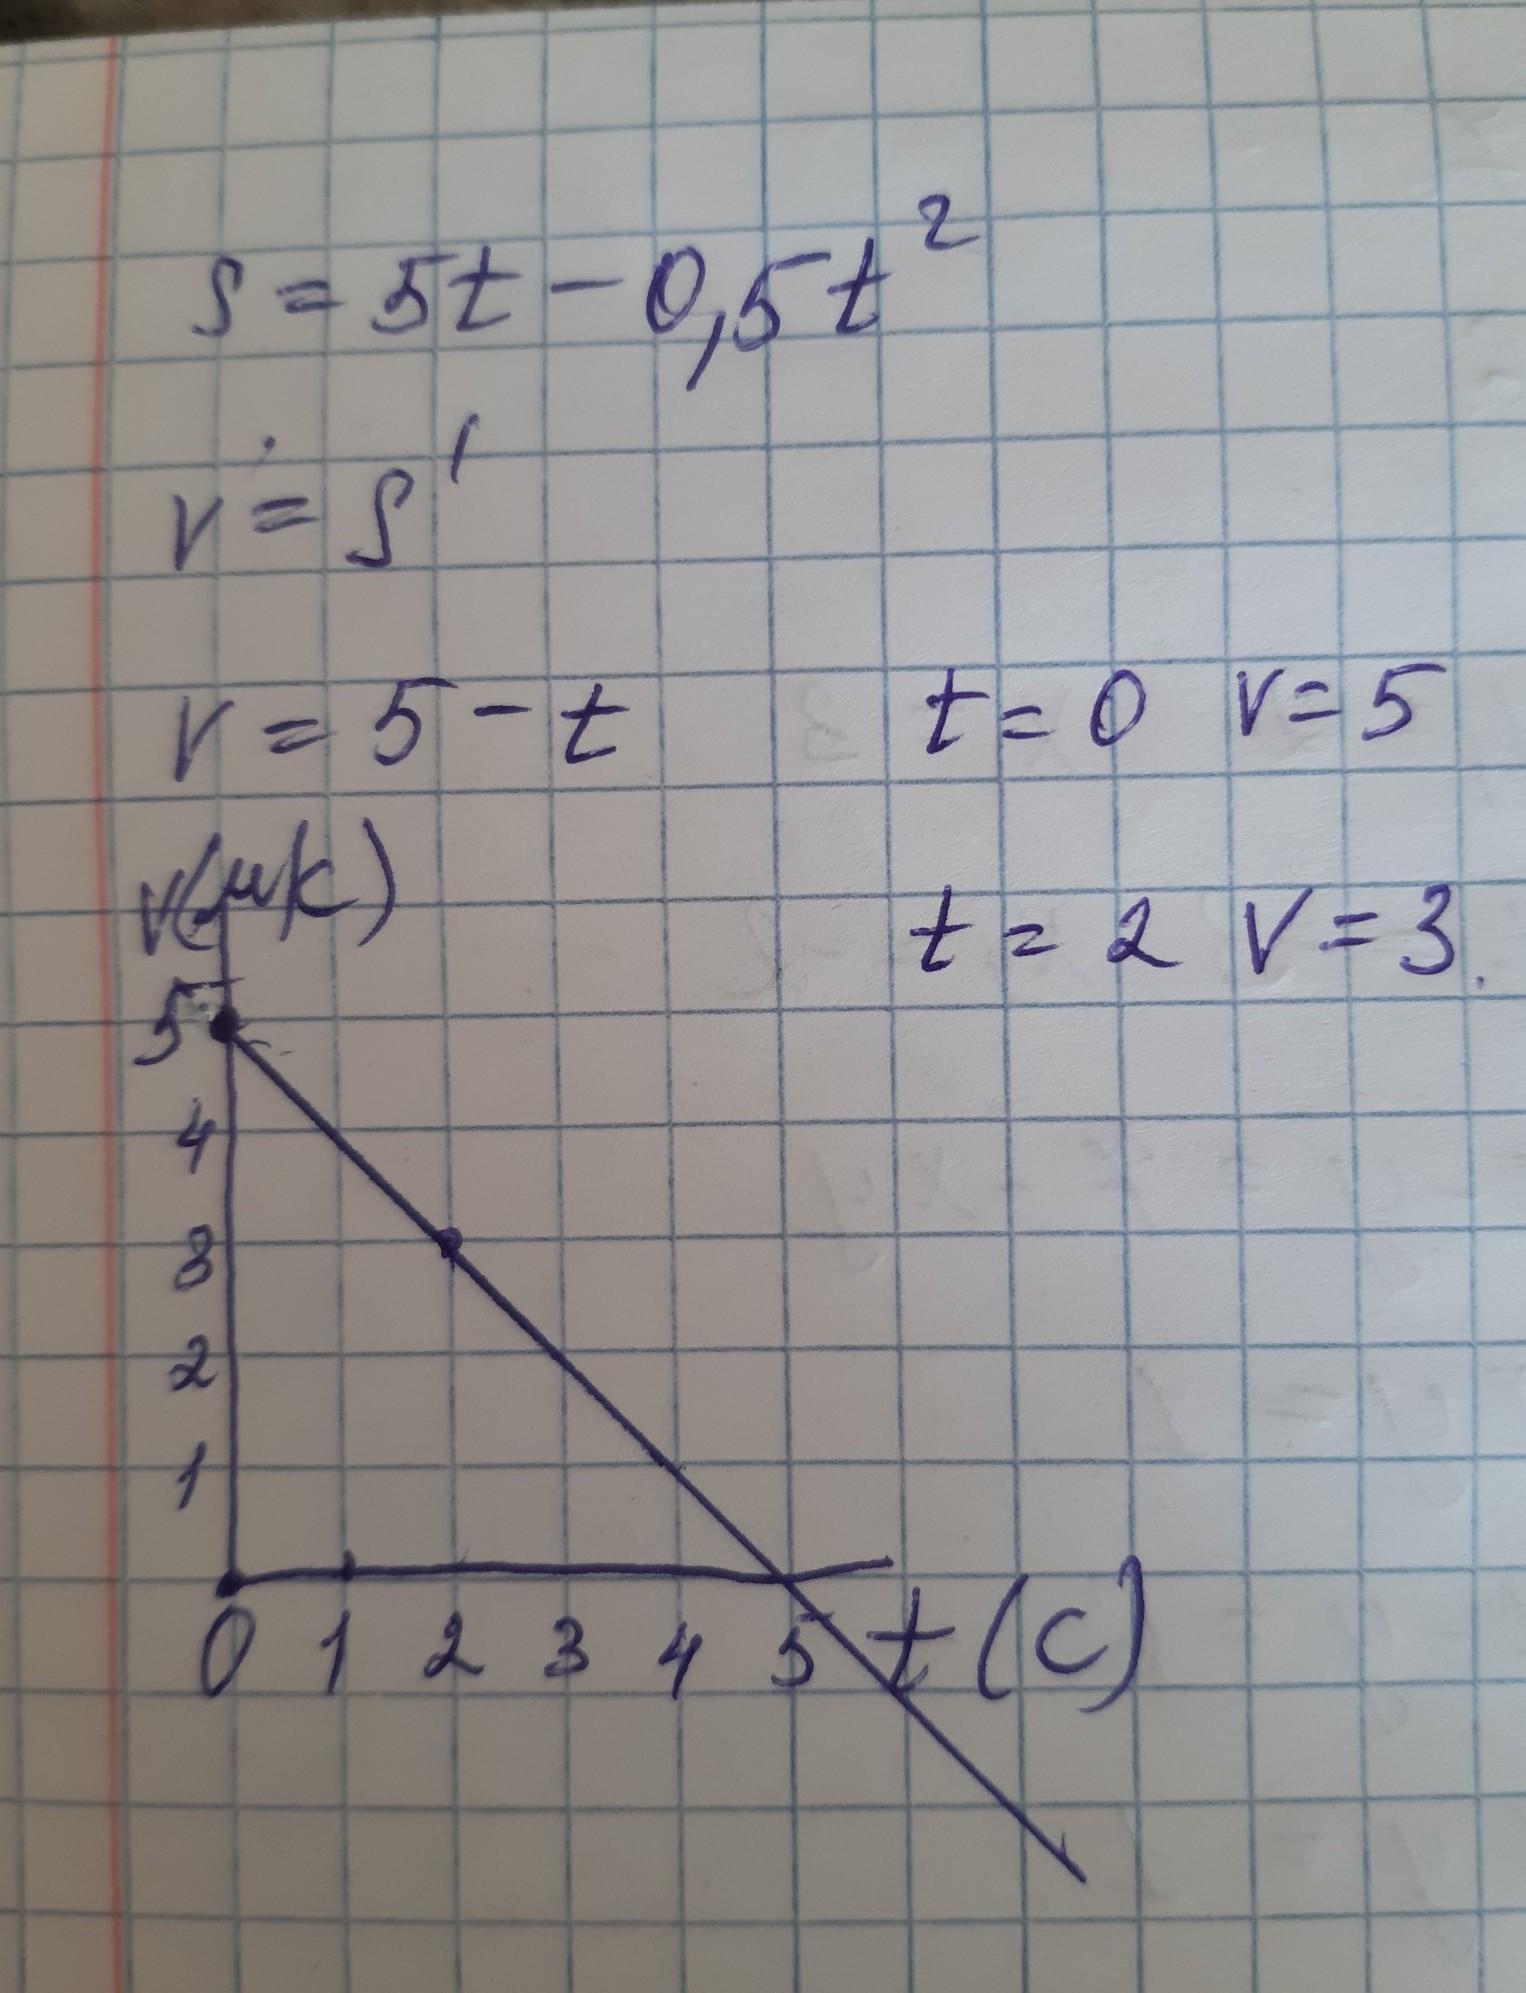 s = 5t - 0,5t²
v = s'
v = 5 - t
t = 0 v = 5
v(м/с)
t = 2 v = 3.
5
4
3
2
1
0 1 2 3 4 5 t(с)